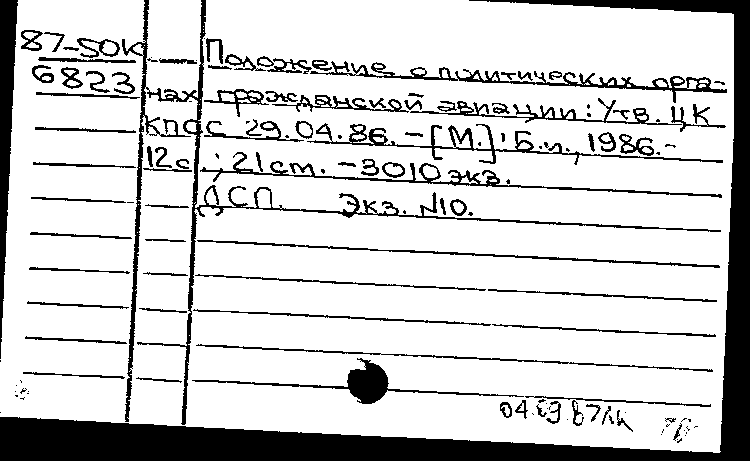 87-50К Положение о политических орга-
6823 нах гражданской авиации: Утв. ЦК
КПСС 29.04.86. - [М.]: Б.и., 1986.-
12с.; 21 ст. - 3010 экз.
ДСП. Экз. N10.